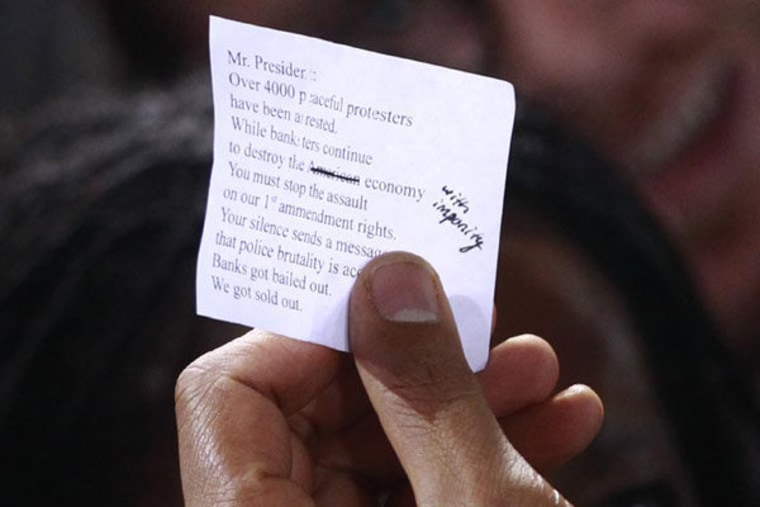 Mr. President:
Over 4000 peaceful protesters
have been arrested.
While banksters continue
to destroy the American economy
with
imponity
You must stop the assault
on our 1st ammendment rights.
Your silence sends a message
that police brutality is
Banks got bailed out.
We got sold out.